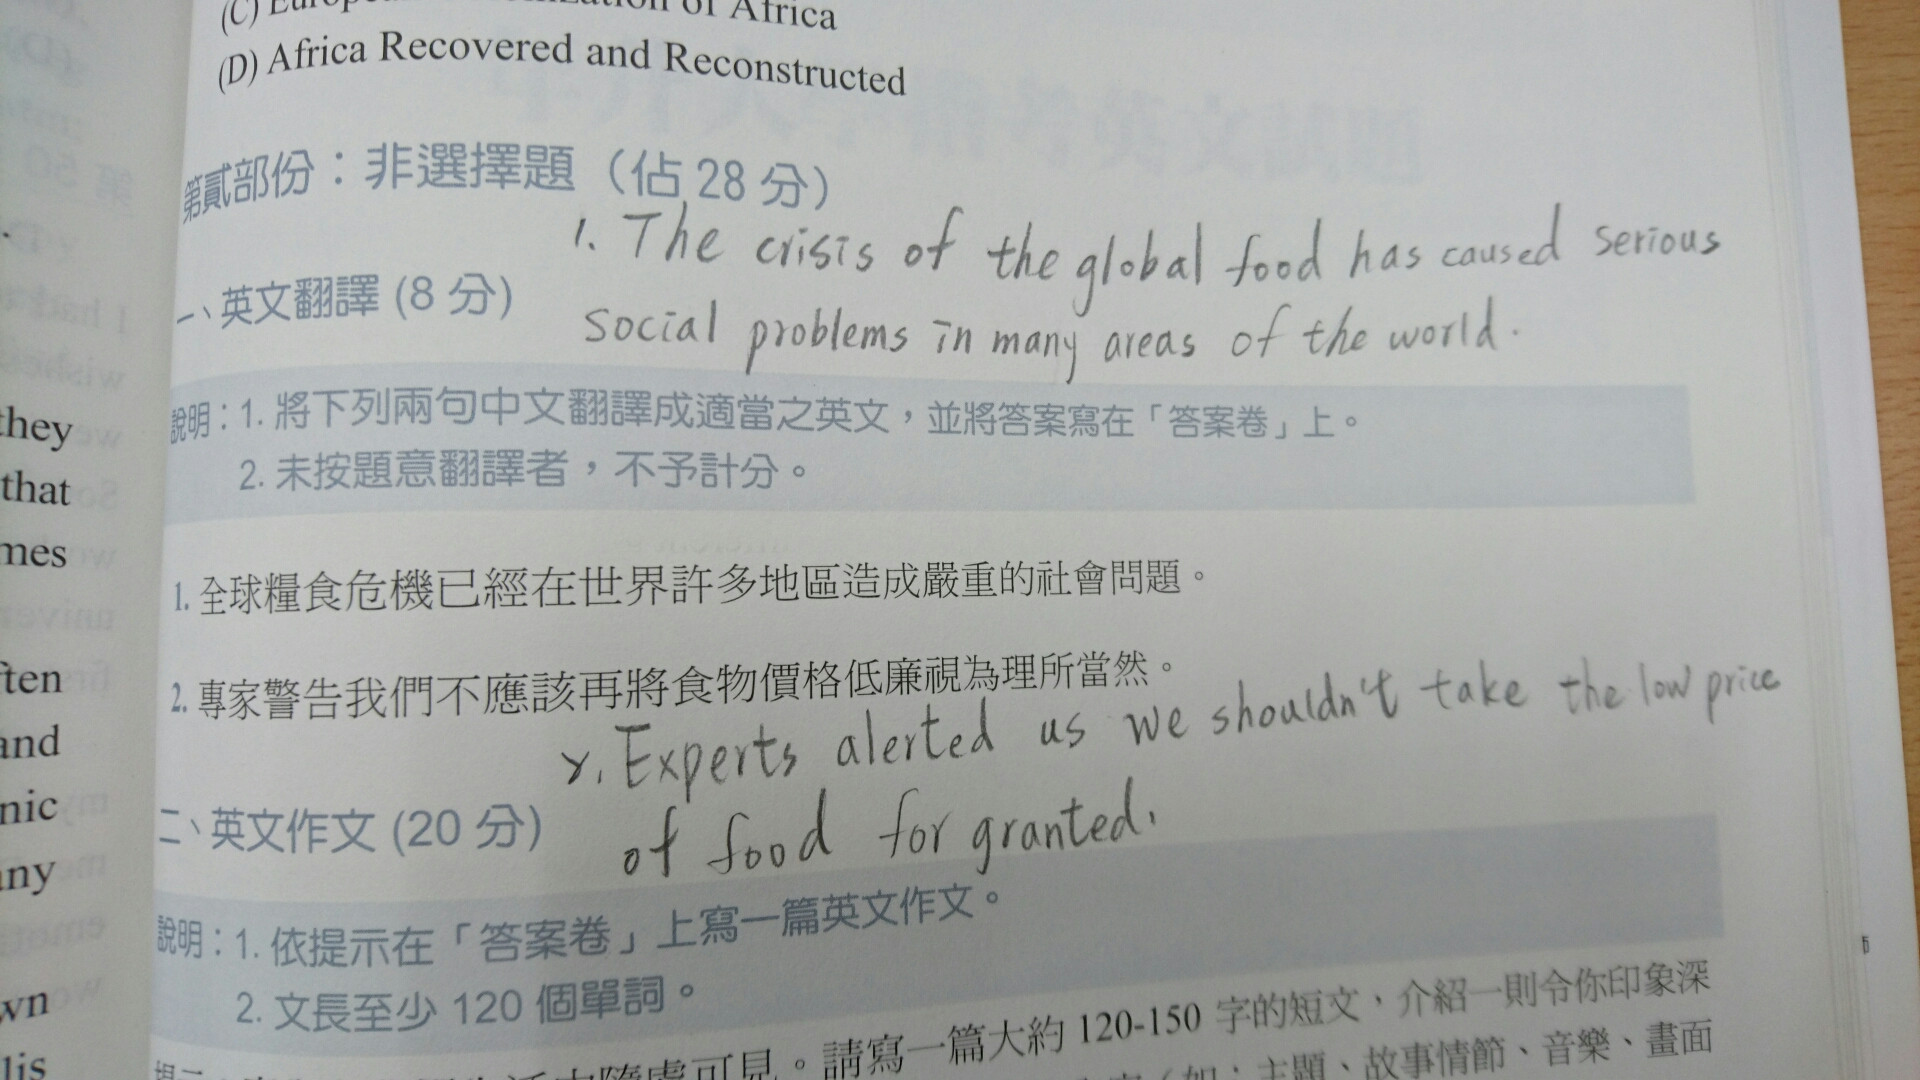 of Africa
(D) Africa Recovered and Reconstructed
第貳部份：非選擇題（佔 28 分）
1. The crisis of the global food has caused serious
social problems in many areas of the world.
一、英文翻譯 (8 分)
說明：1. 將下列兩句中文翻譯成適當之英文，並將答案寫在「答案卷」上。
2. 未按題意翻譯者，不予計分。
1. 全球糧食危機已經在世界許多地區造成嚴重的社會問題。
2. 專家警告我們不應該再將食物價格低廉視為理所當然。
2. Experts alerted us we shouldn't take the low price
of food for granted.
二、英文作文 (20 分)
說明：1. 依提示在「答案卷」上寫一篇英文作文。
2. 文長至少 120 個單詞。
隨處可見。請寫一篇大約 120-150 字的短文，介紹一則令你印象深
（如：主題、故事情節、音樂、畫面
they
that
mes
ften
and
nic
any
wn
lis